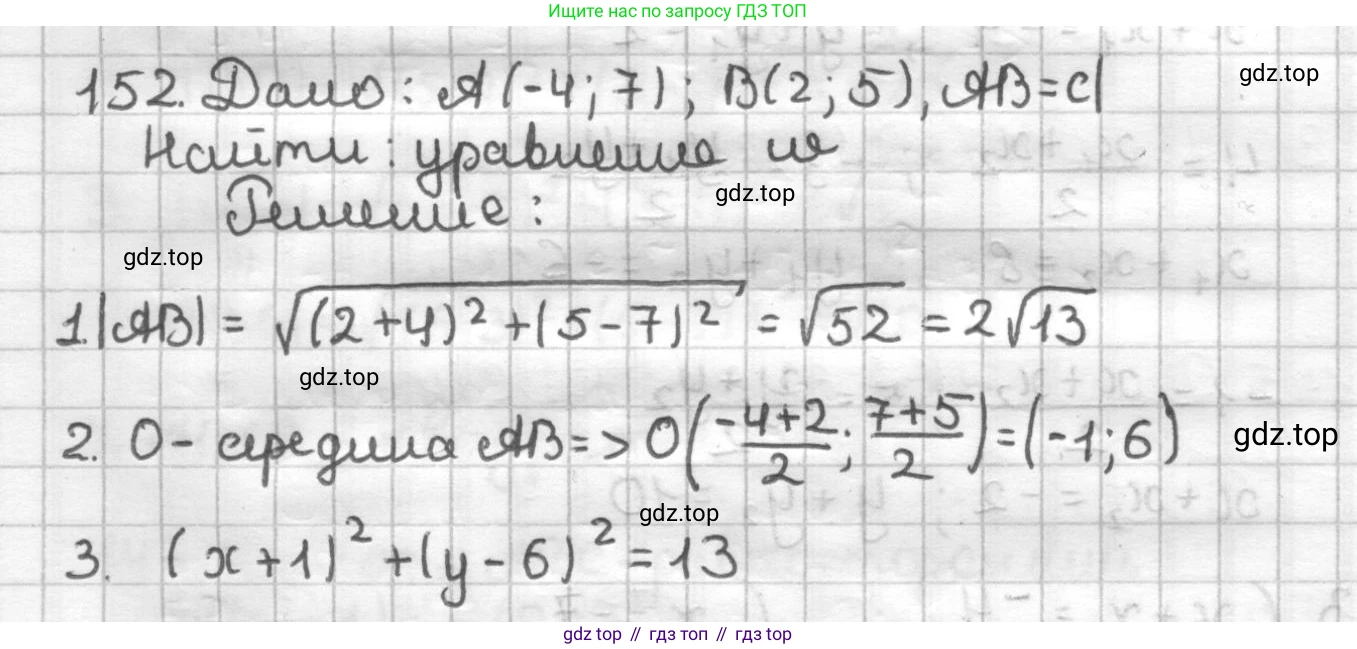 Ищите нас по запросу ГДЗ ТОП
152. Дано: A(-4; 7); B(2; 5), AB = d
gdz.top
Найти: уравнение
gdz.top
Решение:
gdz.top
1. |AB| = √((2+4)² + (5-7)²) = √52 = 2√13
gdz.top
2. O - середина AB => O((-4+2)/2; (7+5)/2) = (-1; 6)
gdz.top
gdz.top
3. (x+1)² + (y-6)² = 13
gdz top // гдз топ // гдз top